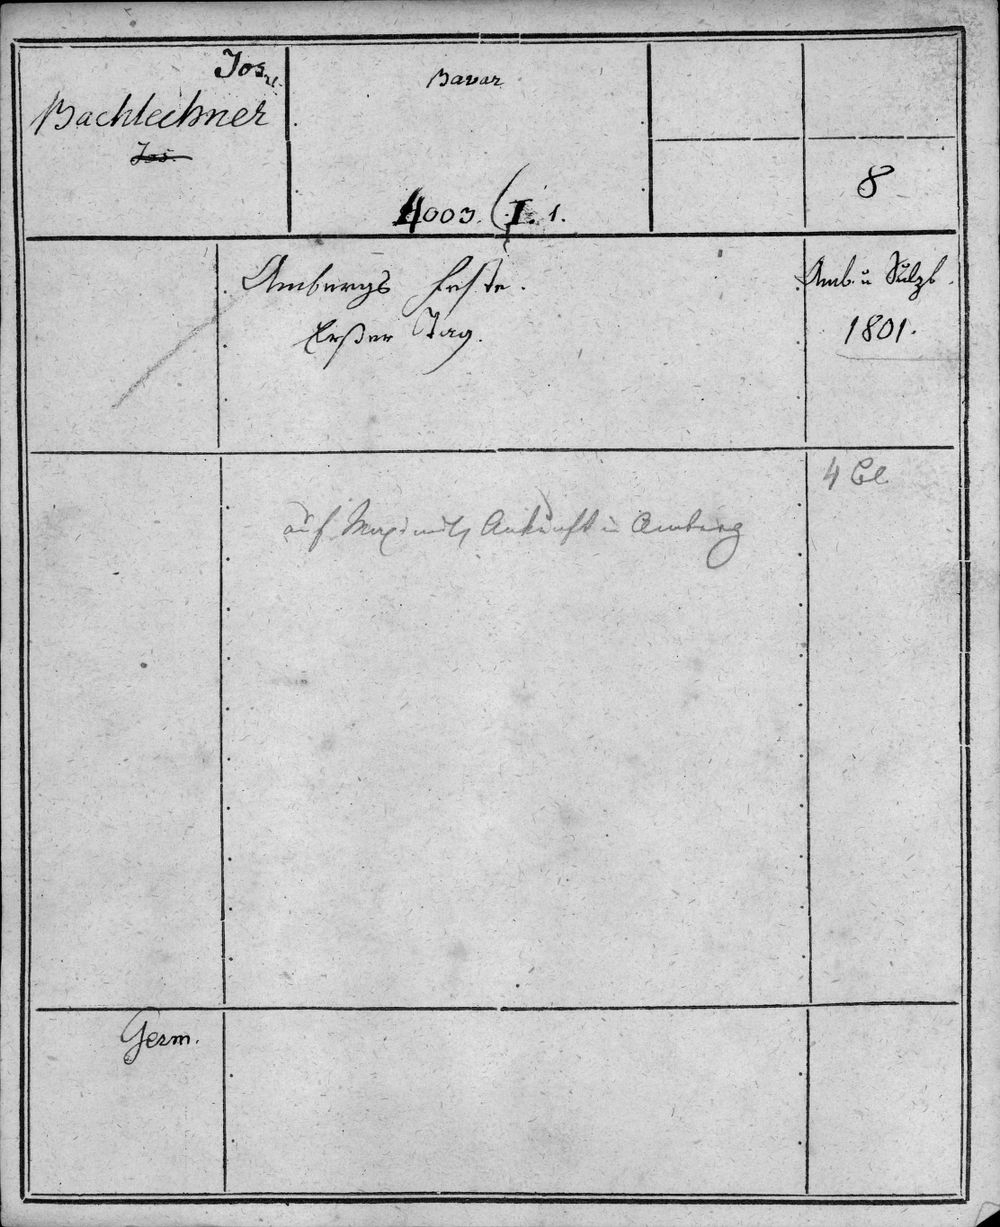 Jos.
Bachlechner
Jos.
Bavar
4003. (I. 1.
8
Ambergs Feste.
Erster Tag.
Amb. u Sulzb.
1801.
4 Bl
auf Maximil. Ankunft in Amberg
Germ.